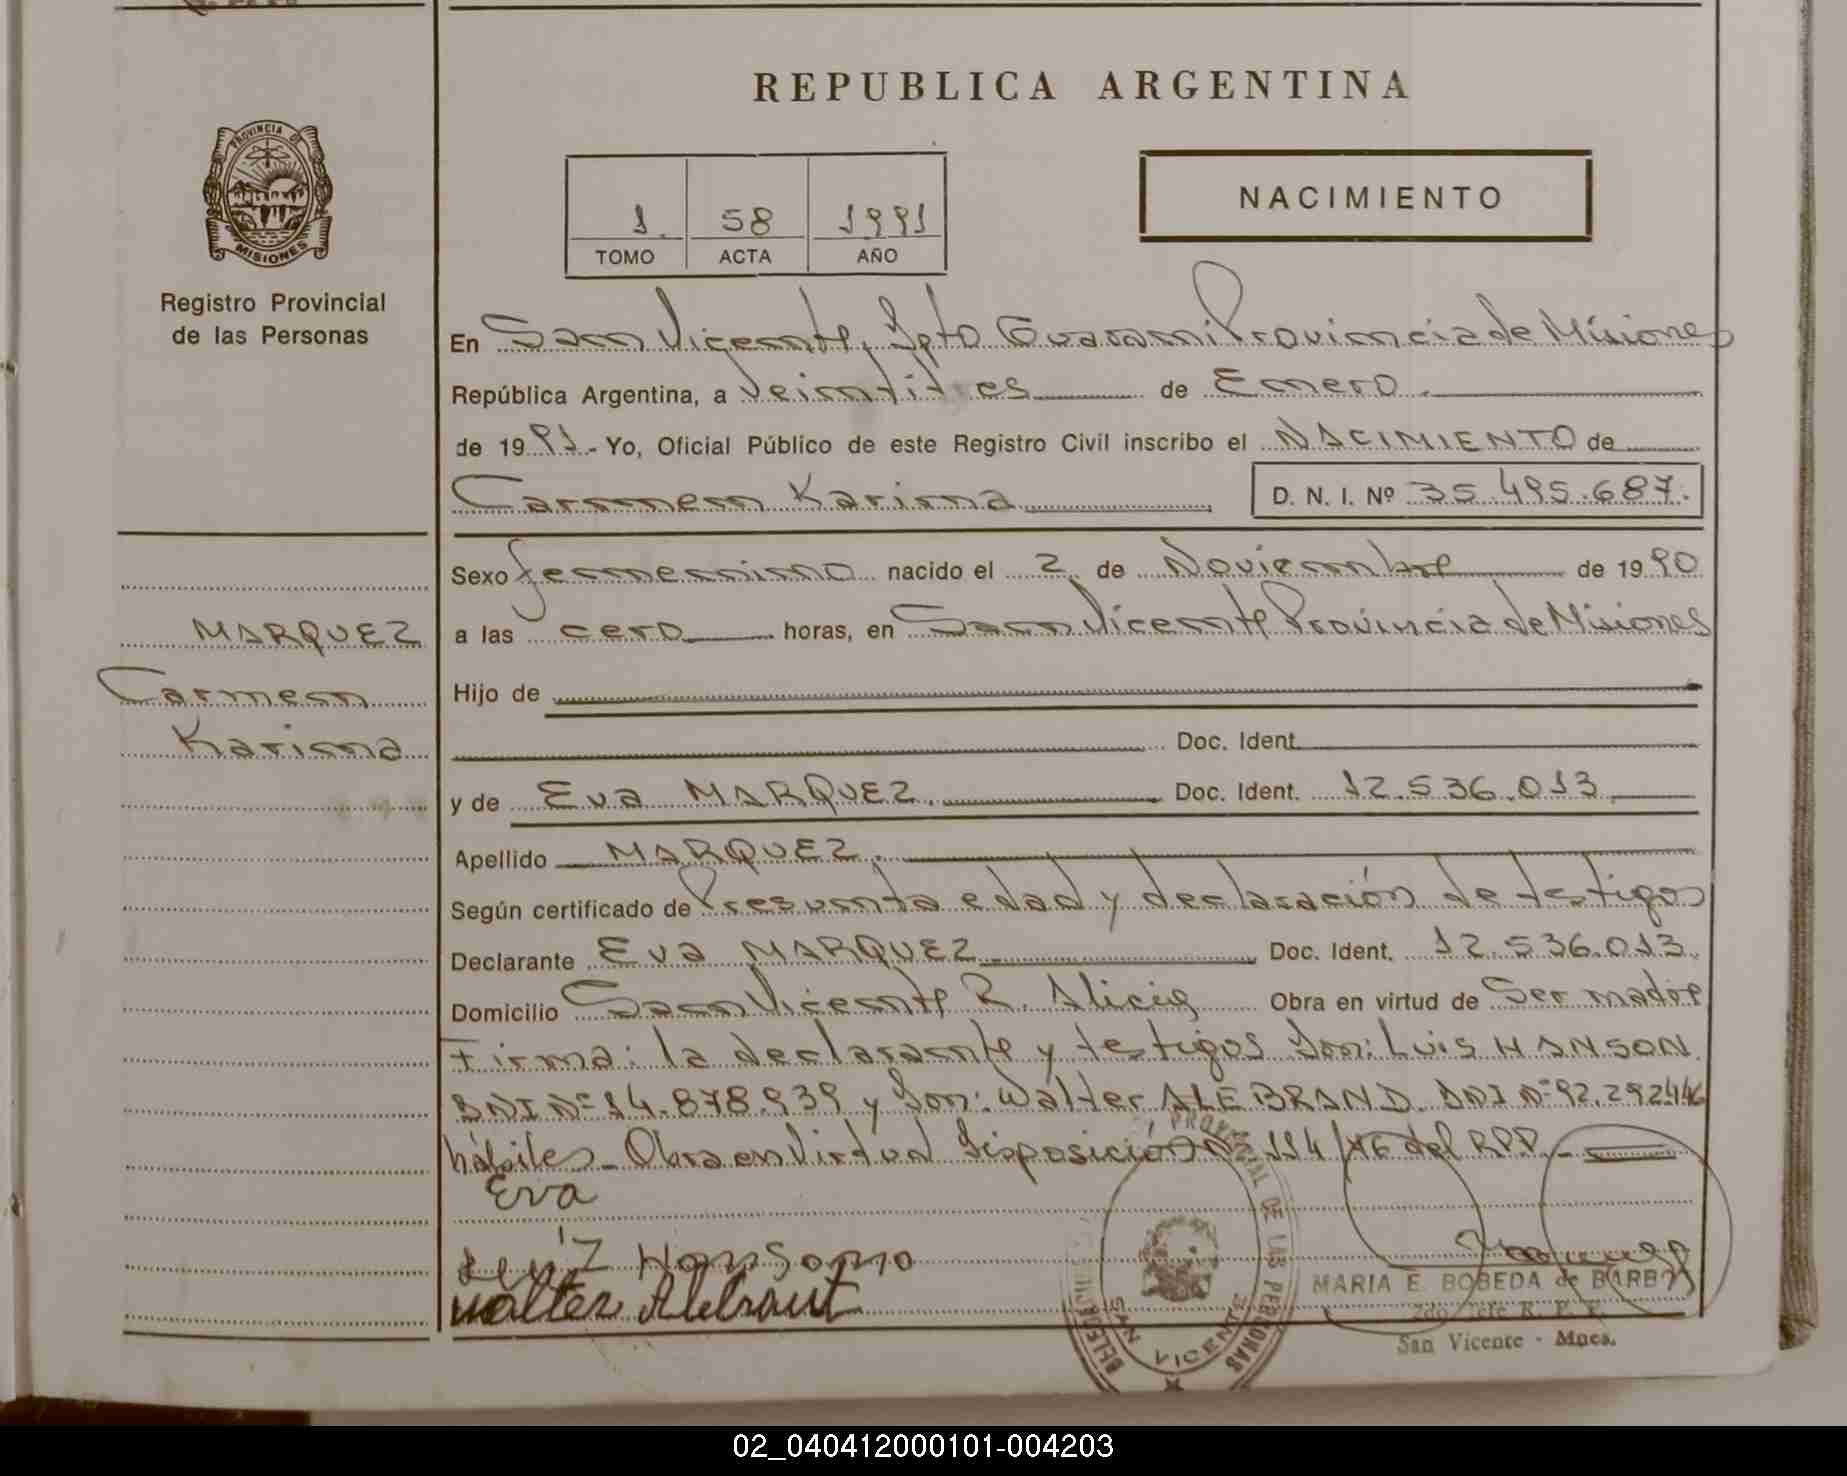 REPUBLICA ARGENTINA
PROVINCIA DE
MISIONES
Registro Provincial
de las Personas
1. 58 1991
TOMO ACTA AÑO
NACIMIENTO
En San Vicente, Dpto Guarani Provincia de Misiones
República Argentina, a Veintitres de Enero.
de 1991.- Yo, Oficial Público de este Registro Civil inscribo el NACIMIENTO de
Carmen Karina D. N. I. Nº 35.495.687.
Sexo femenino nacido el 2 de Noviembre de 1990
MARQUEZ
a las cero horas, en San Vicente Provincia de Misiones
Carmen
Hijo de
Karina
Doc. Ident.
y de Eva MARQUEZ. Doc. Ident. 12.536.013
Apellido MARQUEZ.
Según certificado de Presunta edad y declaración de testigos
Declarante Eva MARQUEZ Doc. Ident. 12.536.013.
Domicilio San Vicente R. Alicia Obra en virtud de Ser madre
Firma: la declarante y testigos Don: Luis HANSON
DNI Nº 14.878.939 y Don: Walter ALEBRAND. DNI Nº 92.292446
hábiles_ Obra en Virtud Disposición Nº 114/76 del RPP._
Eva
Luíz Honsono
Walter Alebraut
PROVINCIAL DE LAS PERSONAS
SAN VICENTE
MARIA E. BOBEDA de BARBO
2do Jefe R. P. P.
San Vicente - Mnes.
02_040412000101-004203